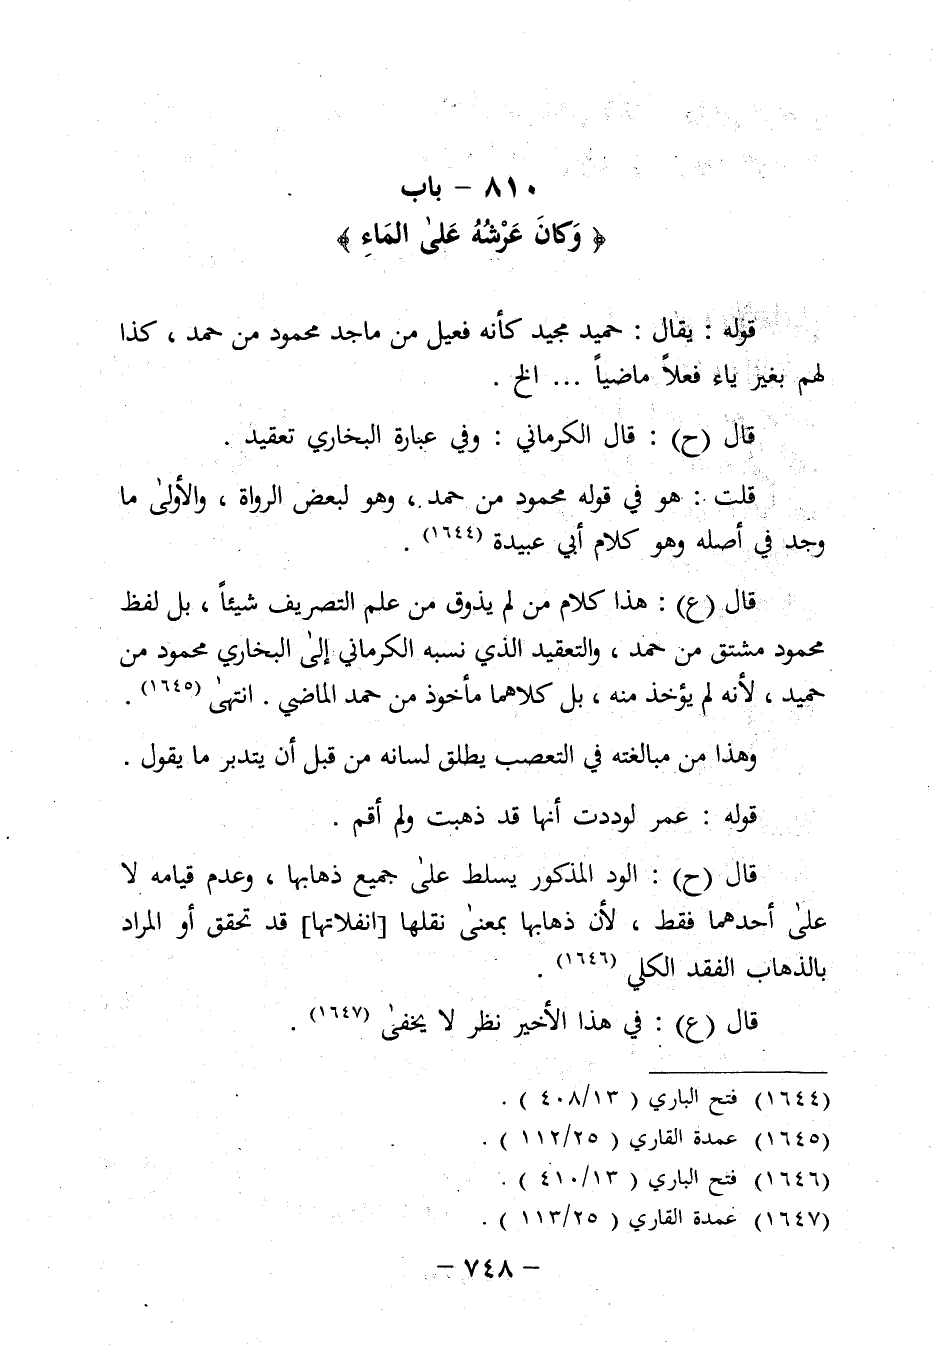 ٨١٠ - باب
﴿ وَكانَ عَرْشُهُ عَلىٰ المَاءِ ﴾
قوله : يقال : حميد مجيد كأنه فعيل من ماجد محمود من حمد ، كذا
لهم بغير ياء فعلاً ماضياً ... الخ .
قال (ح) : قال الكرماني : وفي عبارة البخاري تعقيد .
قلت : هو في قوله محمود من حمد ، وهو لبعض الرواة ، والأولىٰ ما
وجد في أصله وهو كلام أبي عبيدة (١٦٤٤) .
قال (ع) : هذا كلام من لم يذوق من علم التصريف شيئاً ، بل لفظ
محمود مشتق من حمد ، والتعقيد الذي نسبه الكرماني إلىٰ البخاري محمود من
حميد ، لأنه لم يؤخذ منه ، بل كلاهما مأخوذ من حمد الماضي . انتهىٰ (١٦٤٥) .
وهذا من مبالغته في التعصب يطلق لسانه من قبل أن يتدبر ما يقول .
قوله : عمر لوددت أنها قد ذهبت ولم أقم .
قال (ح) : الود المذكور يسلط علىٰ جميع ذهابها ، وعدم قيامه لا
علىٰ أحدهما فقط ، لأن ذهابها بمعنىٰ نقلها [انفلاتها] قد تحقق أو المراد
بالذهاب الفقد الكلي (١٦٤٦) .
قال (ع) : في هذا الأخير نظر لا يخفىٰ (١٦٤٧) .
(١٦٤٤) فتح الباري ( ٤٠٨/١٣ ) .
(١٦٤٥) عمدة القاري ( ١١٢/٢٥ ) .
(١٦٤٦) فتح الباري ( ٤١٠/١٣ ) .
(١٦٤٧) عمدة القاري ( ١١٣/٢٥ ) .
- ٧٤٨ -